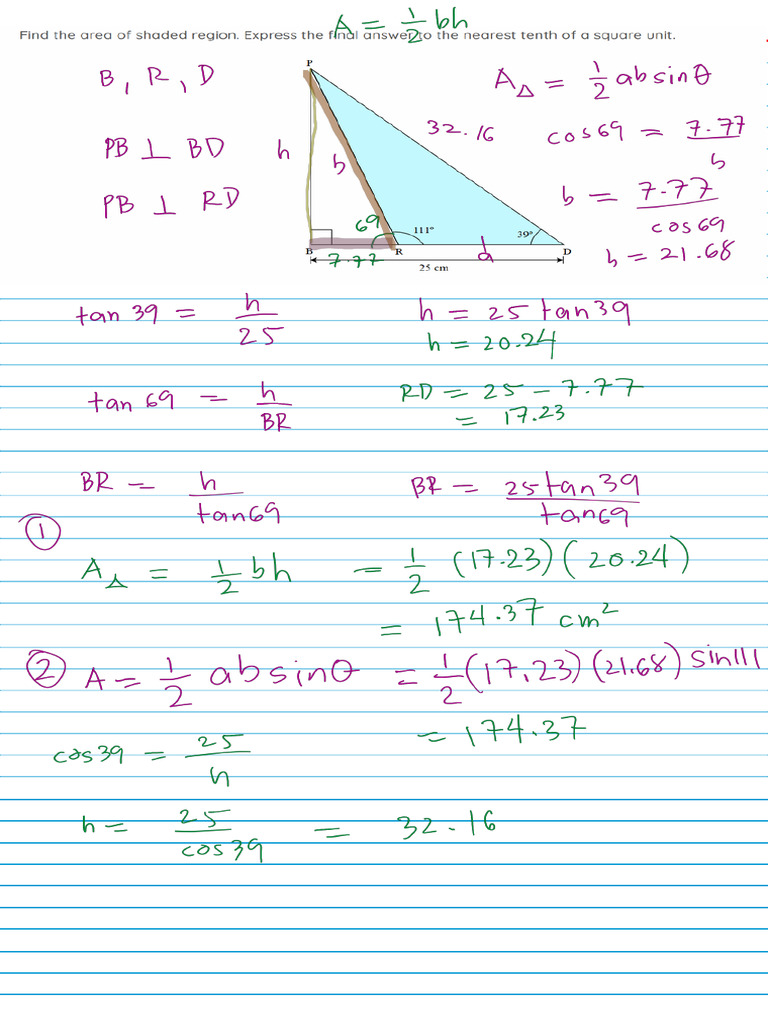 A = 1/2 bh
Find the area of shaded region. Express the final answer to the nearest tenth of a square unit.
B, R, D
PB ⊥ BD
PB ⊥ RD
P
h
b
69
111°
39°
B
7.77
R
d
D
25 cm
32.16
A△ = 1/2 ab sinθ
cos69 = 7.77/b
b = 7.77/cos69
b = 21.68
tan 39 = h/25
h = 25 tan39
h = 20.24
tan 69 = h/BR
RD = 25 - 7.77
= 17.23
BR = h/tan69
BR = 25tan39/tan69
①
A△ = 1/2 bh = 1/2 (17.23)(20.24)
= 174.37 cm²
② A = 1/2 ab sinθ = 1/2 (17.23)(21.68) sin111
= 174.37
cos39 = 25/h
h = 25/cos39 = 32.16